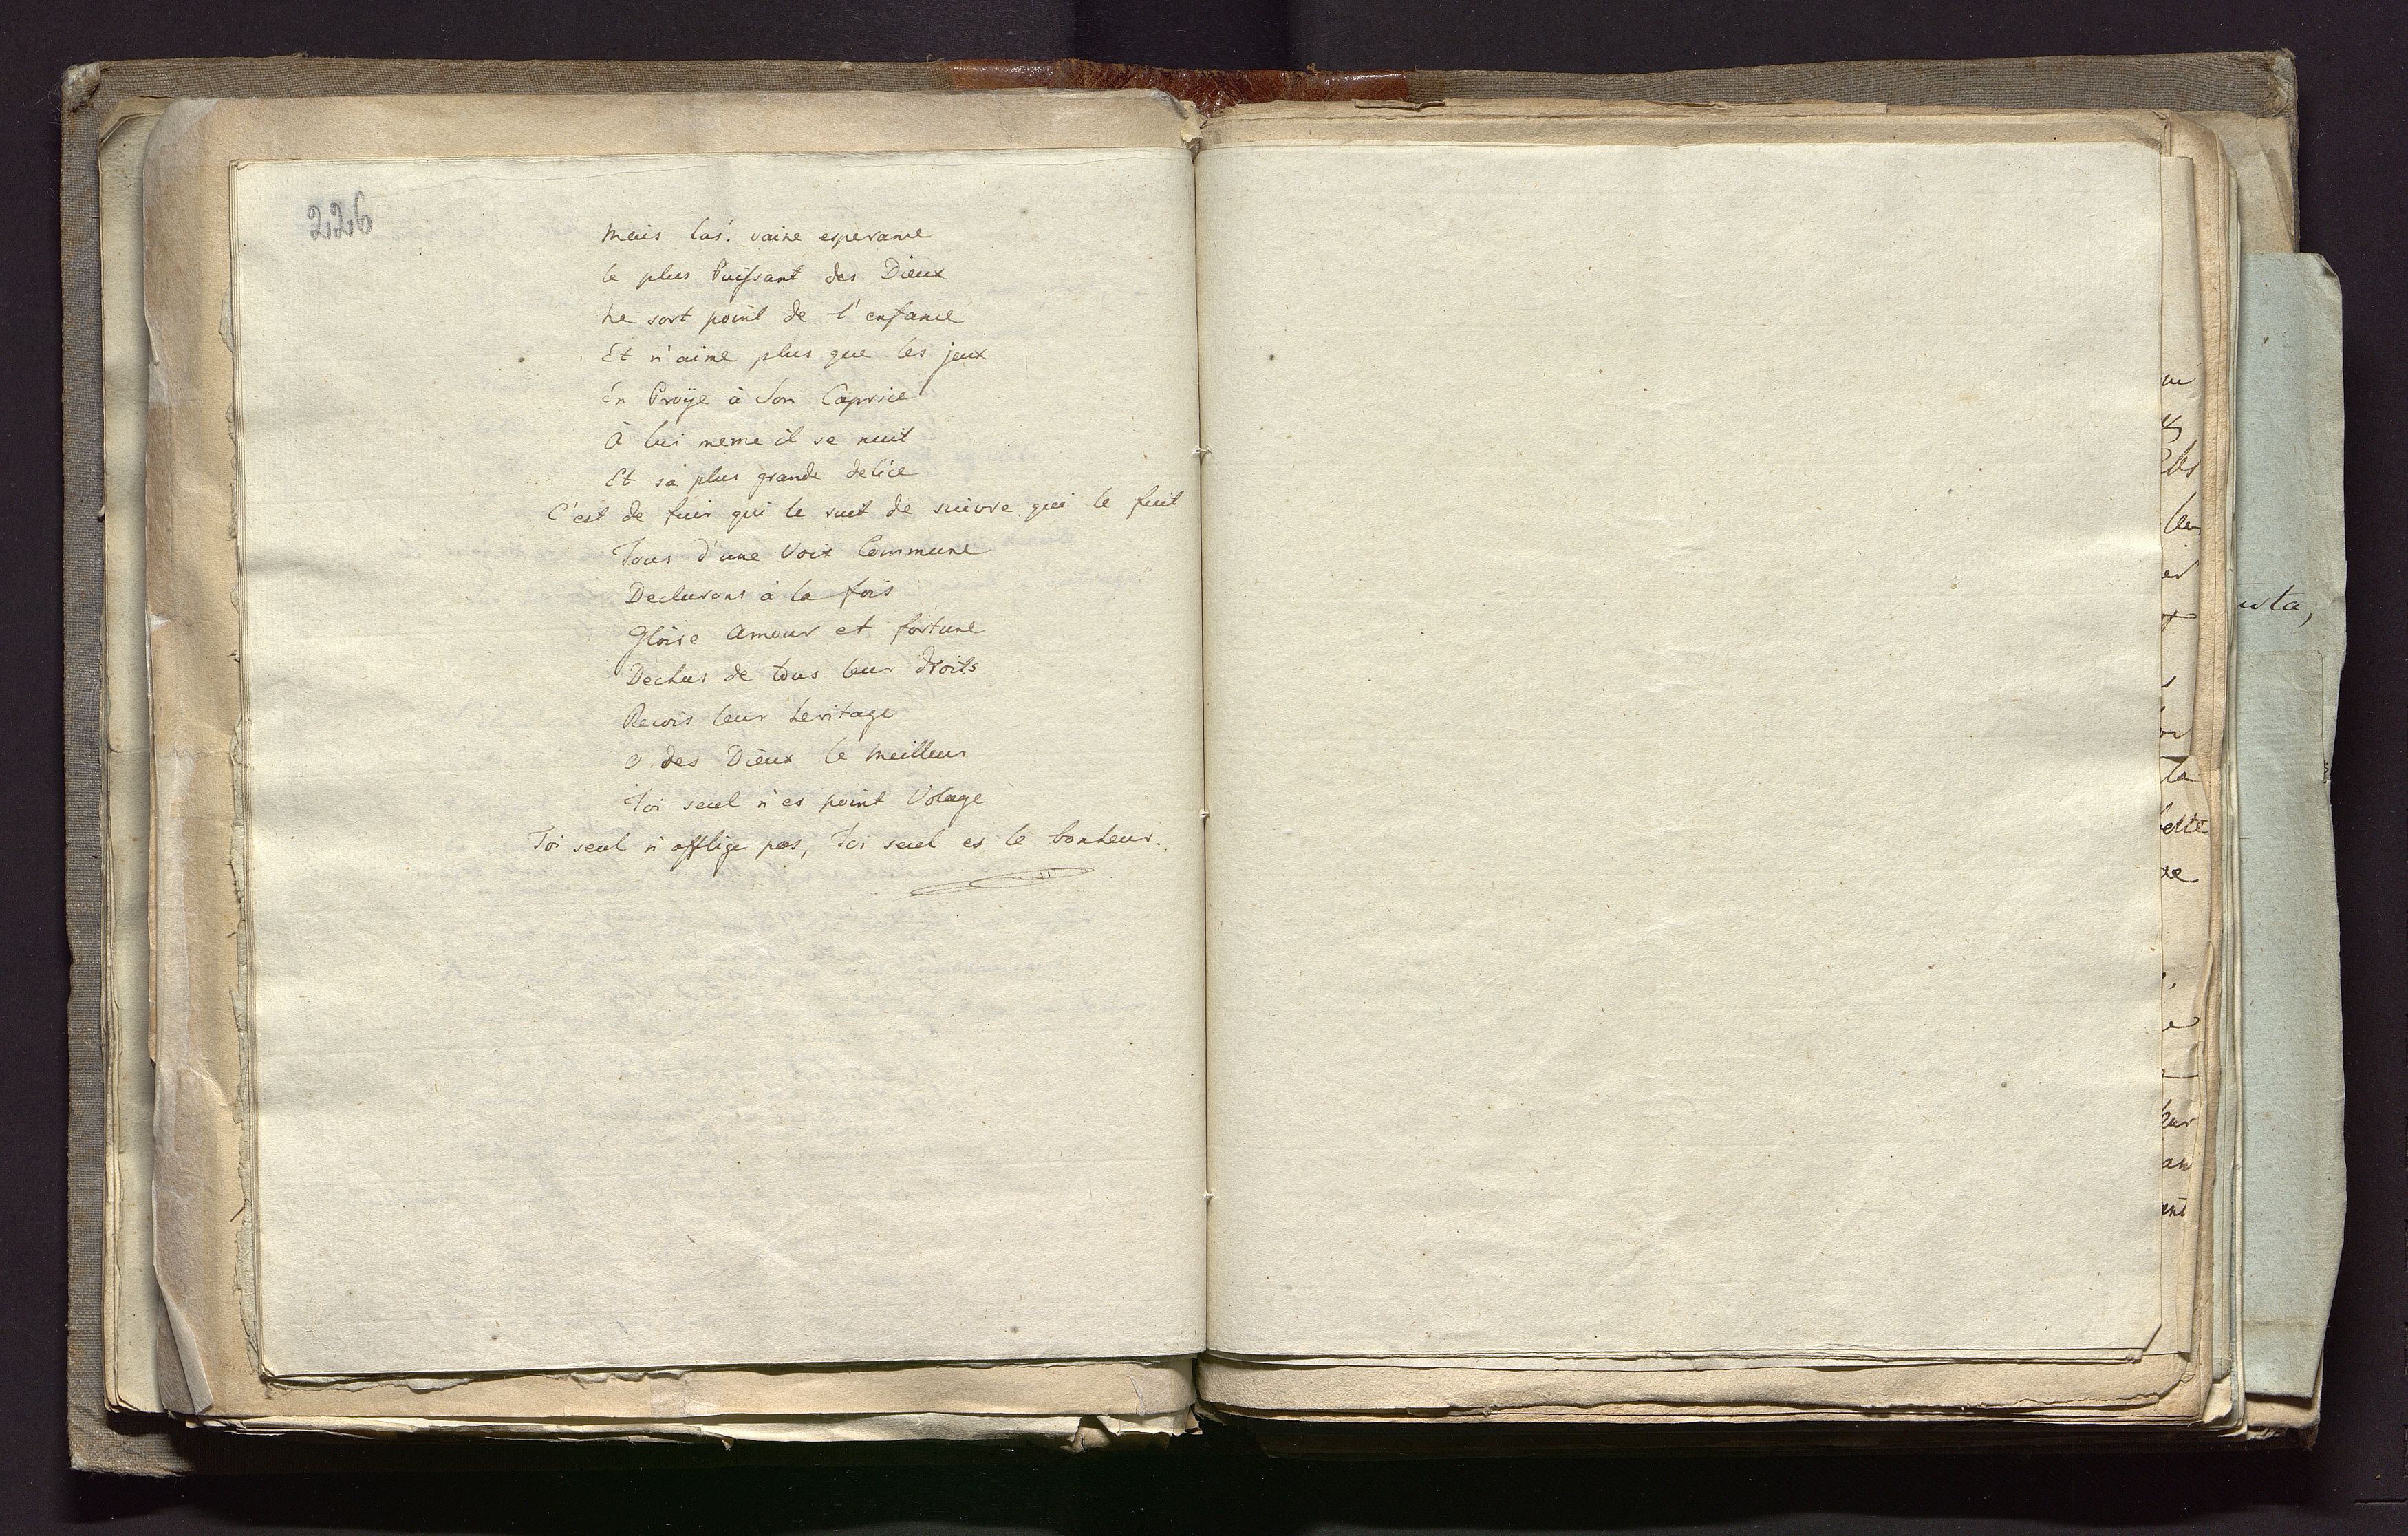 226
Mais las! vaine esperance
le plus Puissant des Dieux
Ne sort point de l'enfance
Et n'aime plus que les jeux
En Proÿe à Son Caprice
À lui meme il se nuit
Et sa plus grande delice
C'est de fuir qui le suit de suivre qui le fuit
Tous d'une Voix Commune
Declarons à la fois
Gloire Amour et fortune
Dechus de tous leur droits
Recois leur heritage
O des Dieux le Meilleur
Toi seul n'es point Volage
Toi seul n'afflige pas, Toi seul es le bonheur.